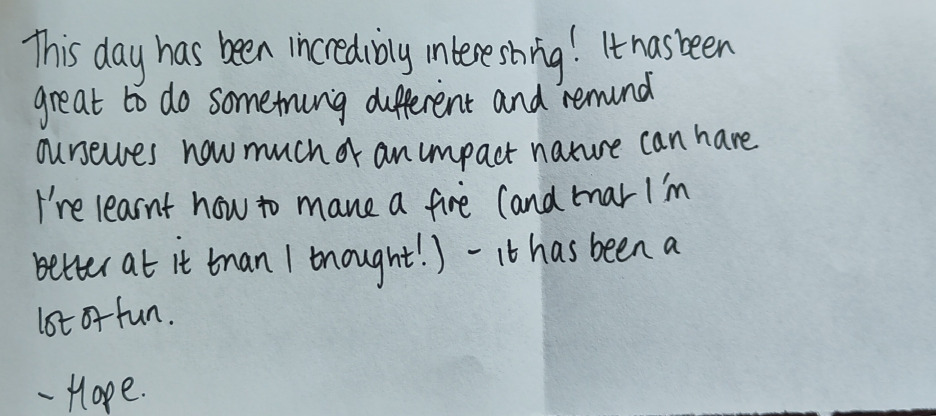 This day has been incredibly interesting! It has been
great to do something different and remind
ourselves how much of an impact nature can have
I've learnt how to make a fire (and that I'm
better at it than I thought!) - it has been a
lot of fun.
- Hope.